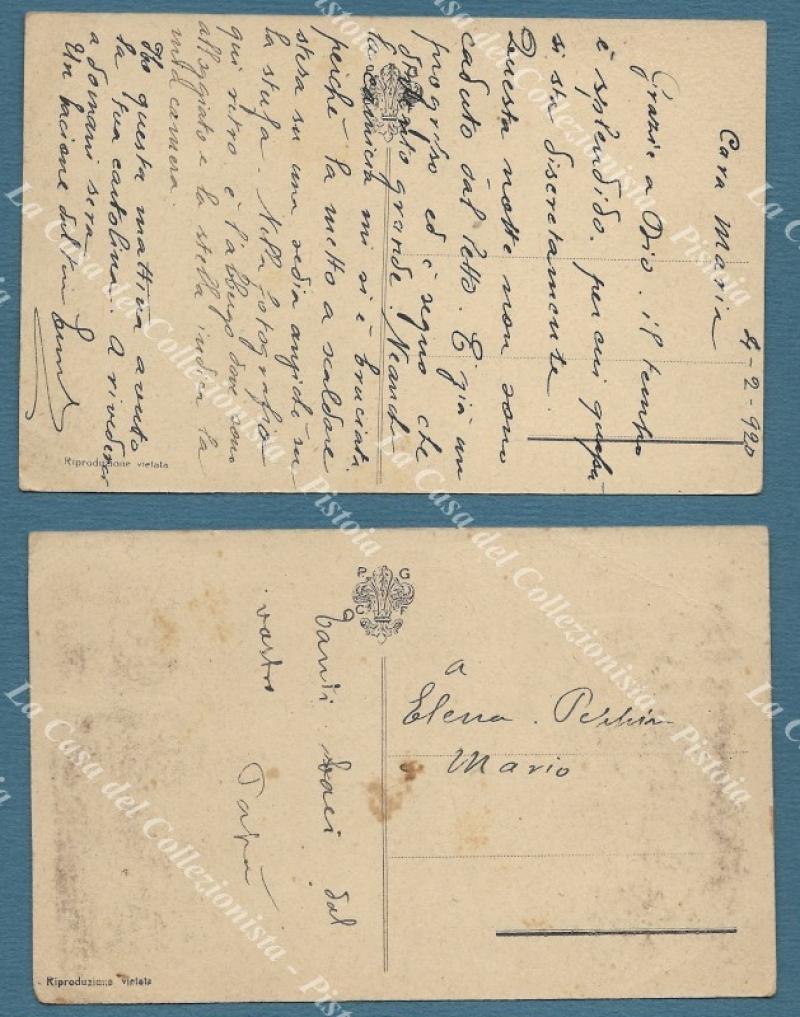 4-2-920
Cara Maria
Grazie a Dio. il tempo
è splendido. per cui quassù
si sta discretamente.
Questa notte non sono
caduto dal letto. E già un
progresso ed è segno che
divento grande. Neanche
la camicia mi si è bruciata
perchè la metto a scaldare
stesa su una sedia su
la stufa. Nella fotografia
qui retro è l'albergo dove sono
alloggiato e la stella indica la
mia camera.
Ho questa mattina avuto
la tua cartolina. A rivederci
a domani sera
Un bacione dal tuo
Riproduzione vietata
A G
C F
Tanti baci dal
vostro
Papà
a
Elena. Peppin
Mario
Riproduzione vietata
La Casa del Collezionista - Pistoia